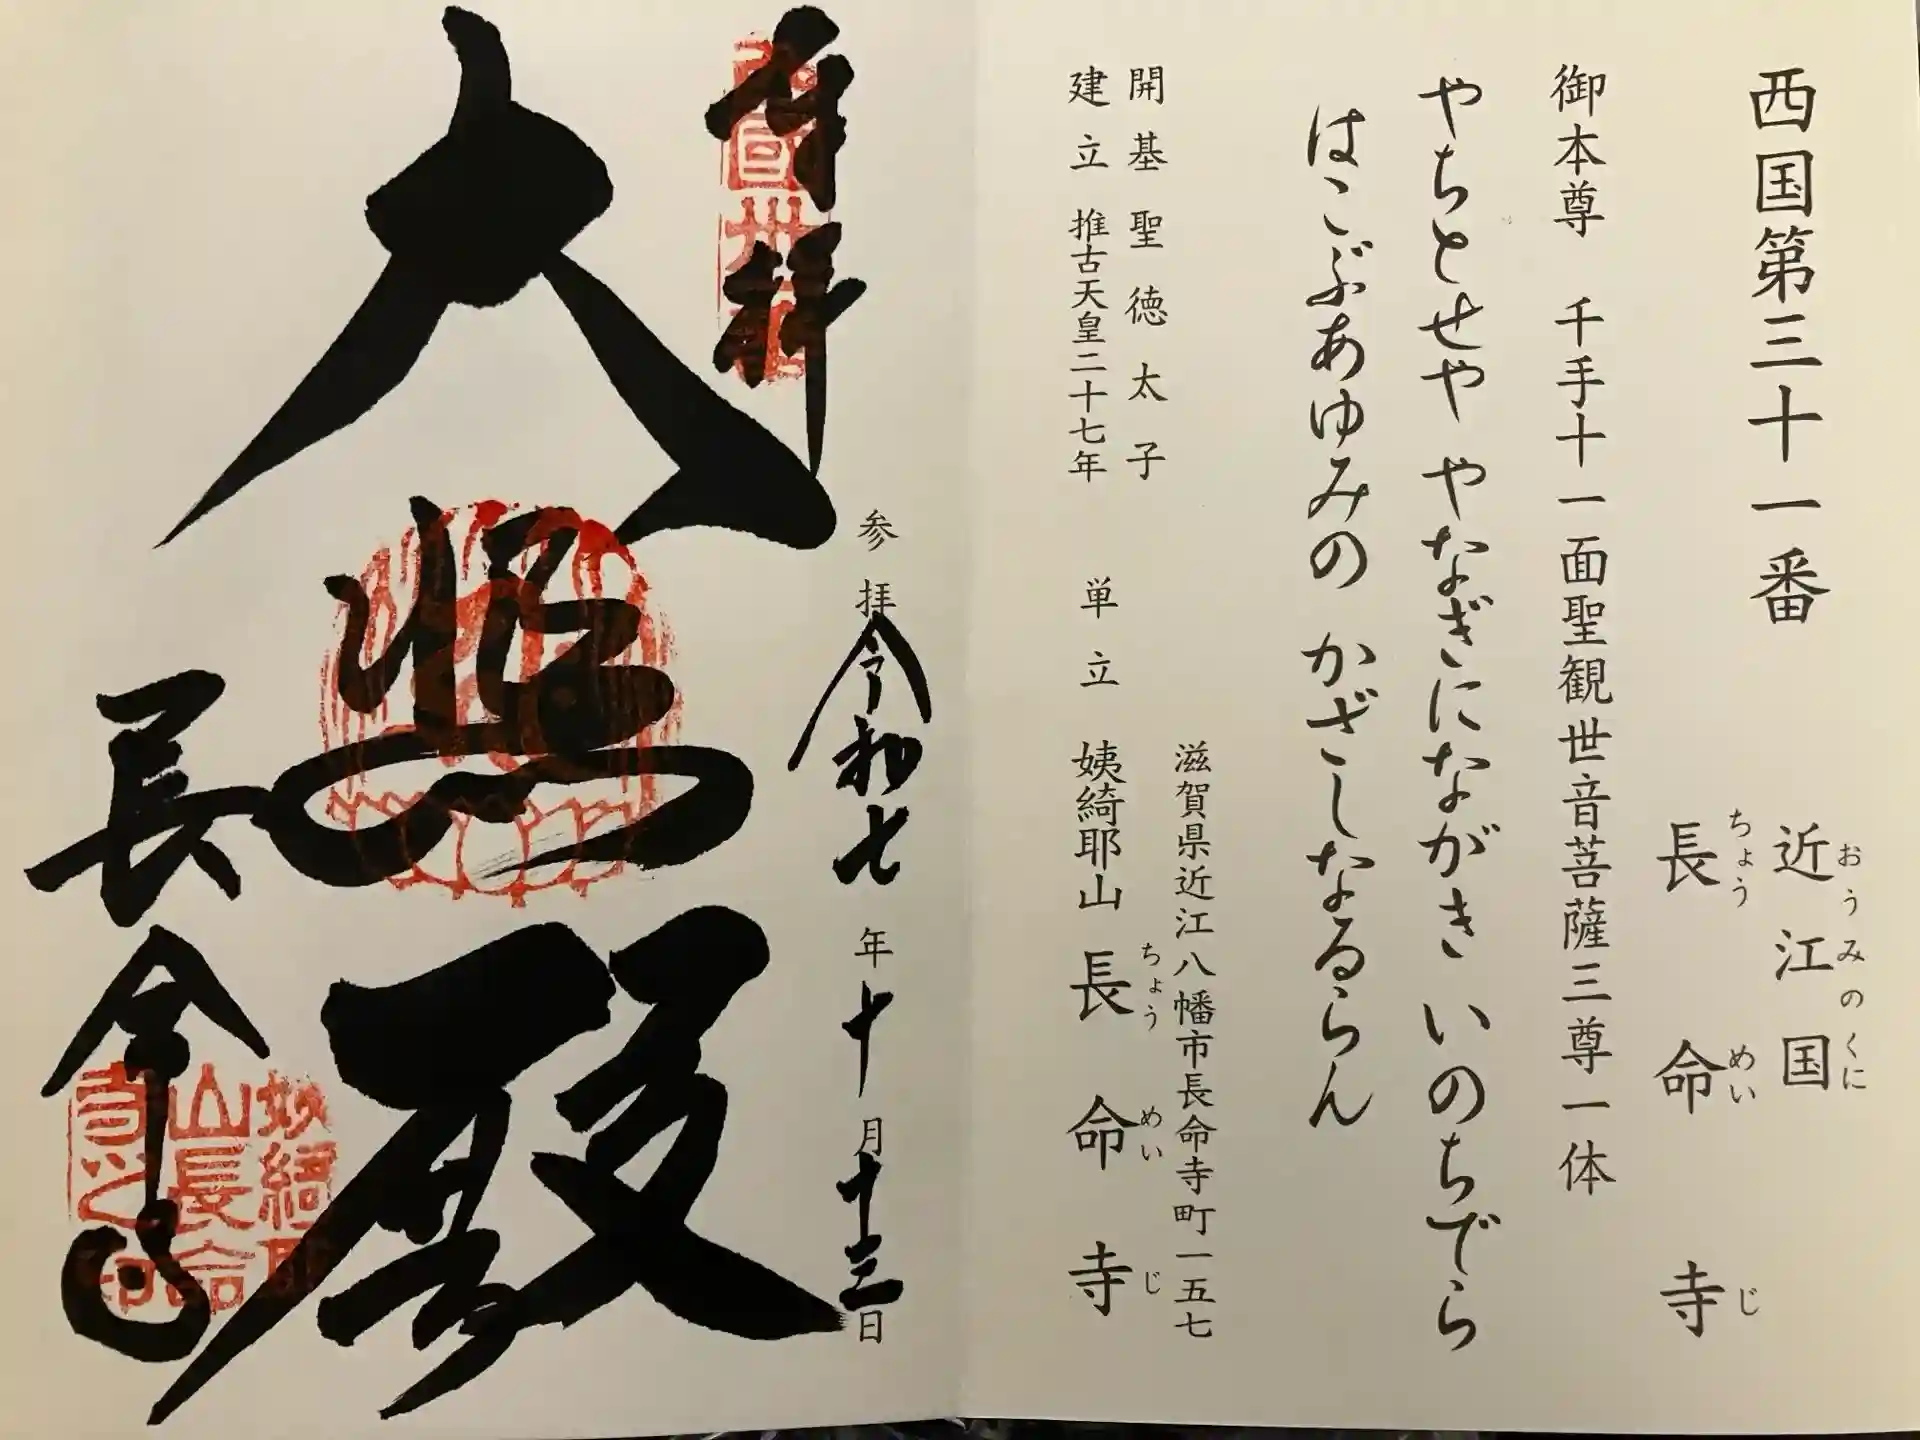 西国第三十一番
近江国
おうみのくに
長命寺
ちょうめいじ
御本尊 千手十一面聖観世音菩薩三尊一体
やちとせや やなぎにながき いのちでら
はこぶあゆみの かざしなるらん
滋賀県近江八幡市長命寺町一五七
開基 聖徳太子
建立 推古天皇二十七年
単立 姨綺耶山 長命寺
ちょうめいじ
奉拝
参拝 令和七年十月十三日
大悲殿
長命寺